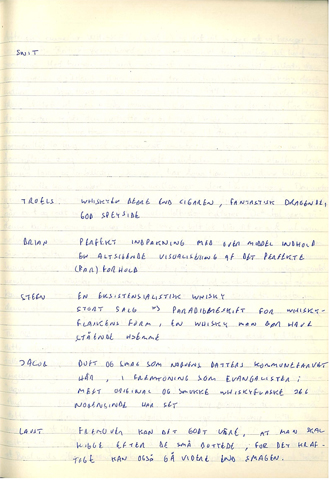 SNIT
TROELS. WHISKYEN BEDRE END CIGAREN, FANTASTISK DRAGENDE,
GOD SPEYSIDE
BRIAN PERFEKT INDPAKNING MED OVER MIDDEL INDHOLD
EN ALTSIGENDE VISUALISERING AF DET PERFEKTE
(PAR)FORHOLD
STEEN EN EKSISTENSIALISTISK WHISKY
STORT SALG => PARADIGMESKIFT FOR WHISKY-
FLASKENS FORM, EN WHISKY MAN BØR HAVE
STÅENDE HJEMME
JACOB DUFT OG SMAG SOM NABOENS DATTERS
HÅR, I FREMTONING SOM EVANGELISTER;
MEST ORIGINAL OG SMUKKE WHISKYFLASKE JEG
NOGENSINDE HAR SET
FREMOVER KAN DET GODT VÆRE, AT MAN SKAL
KIGGE EFTER DE SMÅ DUTTEDE, FOR DET KRAF-
TIGE KAN OGSÅ GÅ VIDERE END SMAGEN.